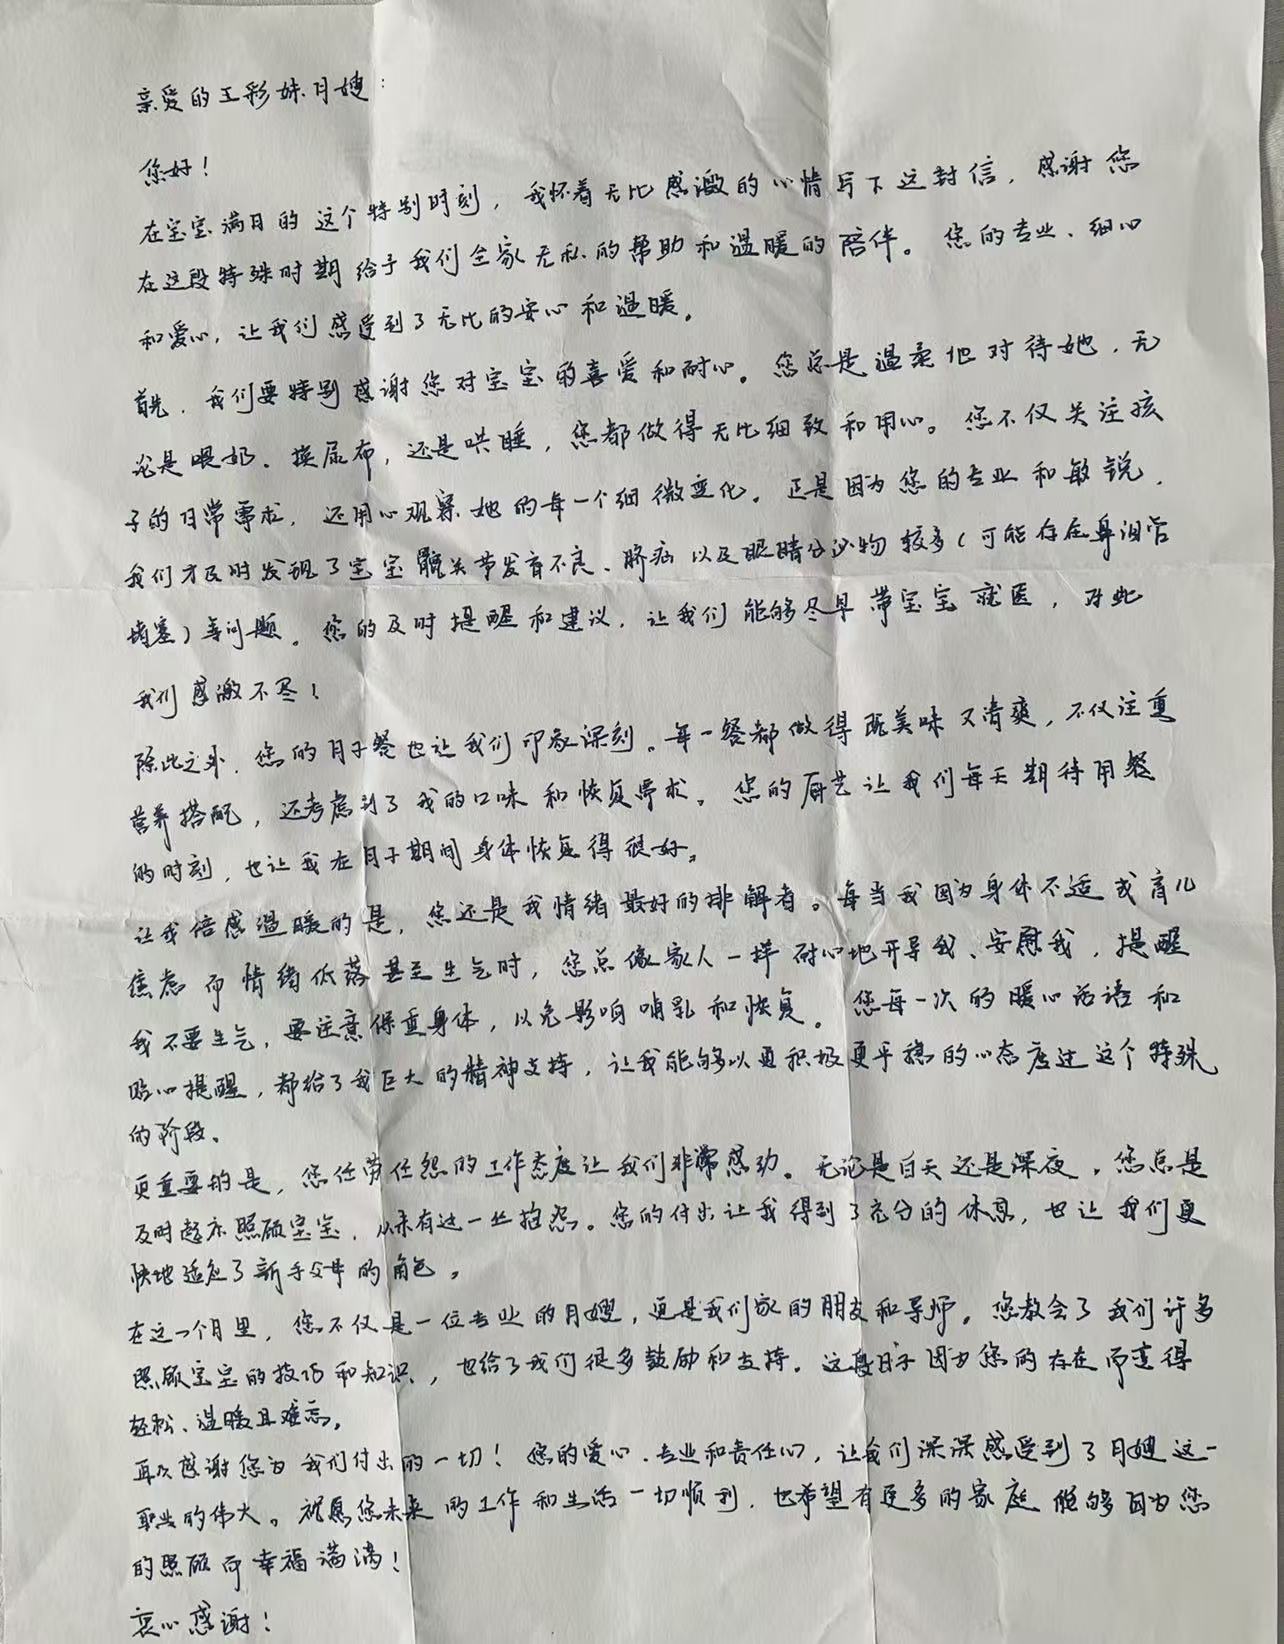 亲爱的王彩妹月嫂：
您好！
在宝宝满月的这个特别时刻，我怀着无比感激的心情写下这封信，感谢您
在这段特殊时期给予我们全家无私的帮助和温暖的陪伴。您的专业、细心
和爱心，让我们感受到了无比的安心和温暖。
首先，我们要特别感谢您对宝宝的喜爱和耐心。您总是温柔地对待她，无
论是喂奶、换尿布，还是哄睡，您都做得无比细致和用心。您不仅关注孩
子的日常需求，还用心观察她的每一个细微变化。正是因为您的专业和敏锐，
我们才及时发现了宝宝髋关节发育不良、脐疝以及眼睛分泌物较多（可能存在鼻泪管
堵塞）等问题。您的及时提醒和建议，让我们能够尽早带宝宝就医，对此
我们感激不尽！
除此之外，您的月子餐也让我们印象深刻。每一餐都做得既美味又清爽，不仅注重
营养搭配，还考虑到了我的口味和恢复需求。您的厨艺让我们每天期待用餐
的时刻，也让我在月子期间身体恢复得很好。
让我倍感温暖的是，您还是我情绪最好的排解者。每当我因为身体不适或育儿
焦虑而情绪低落甚至生气时，您总像家人一样耐心地开导我、安慰我，提醒
我不要生气，要注意保重身体，以免影响哺乳和恢复。您每一次的暖心话语和
贴心提醒，都给了我巨大的精神支持，让我能够以更积极更平稳的心态度过这个特殊
的阶段。
更重要的是，您任劳任怨的工作态度让我们非常感动。无论是白天还是深夜，您总是
及时起来照顾宝宝，从未有过一丝抱怨。您的付出让我得到了充分的休息，也让我们更
快地适应了新手父母的角色。
在这一个月里，您不仅是一位专业的月嫂，更是我们家的朋友和导师。您教会了我们许多
照顾宝宝的技巧和知识，也给了我们很多鼓励和支持。这段日子因为您的存在而变得
轻松、温暖且难忘。
再次感谢您为我们付出的一切！您的爱心、专业和责任心，让我们深深感受到了月嫂这一
职业的伟大。祝愿您未来的工作和生活一切顺利，也希望有更多的家庭能够因为您
的照顾而幸福满满！
衷心感谢！